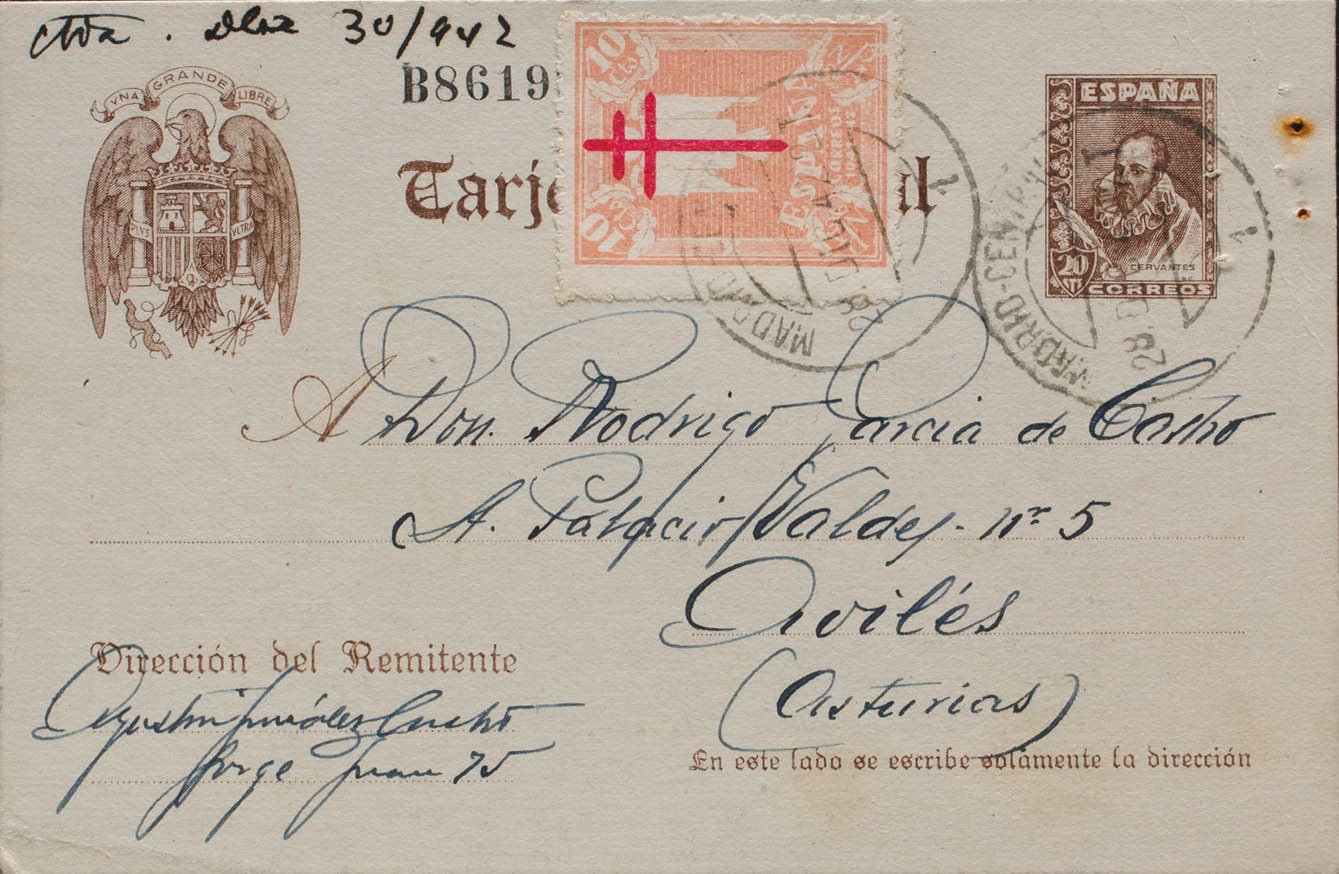 ctda. Dbre 30/942
UNA GRANDE LIBRE
PLVS VLTRA
B8619
10 CTS
ESPAÑA
CORREOS
10
ESPAÑA
20
CERVANTES
CORREOS
MADRID-CENTRAL
28 DIC 42
MADRID-CENTRAL
28 DIC
Tarje l
A Don Rodrigo Garcia de Castro
A. Palacio Valdes - nr 5
Avilés
(Asturias)
Dirección del Remitente
Agustin González Castro
Jorge Juan 75
En este lado se escribe solamente la dirección